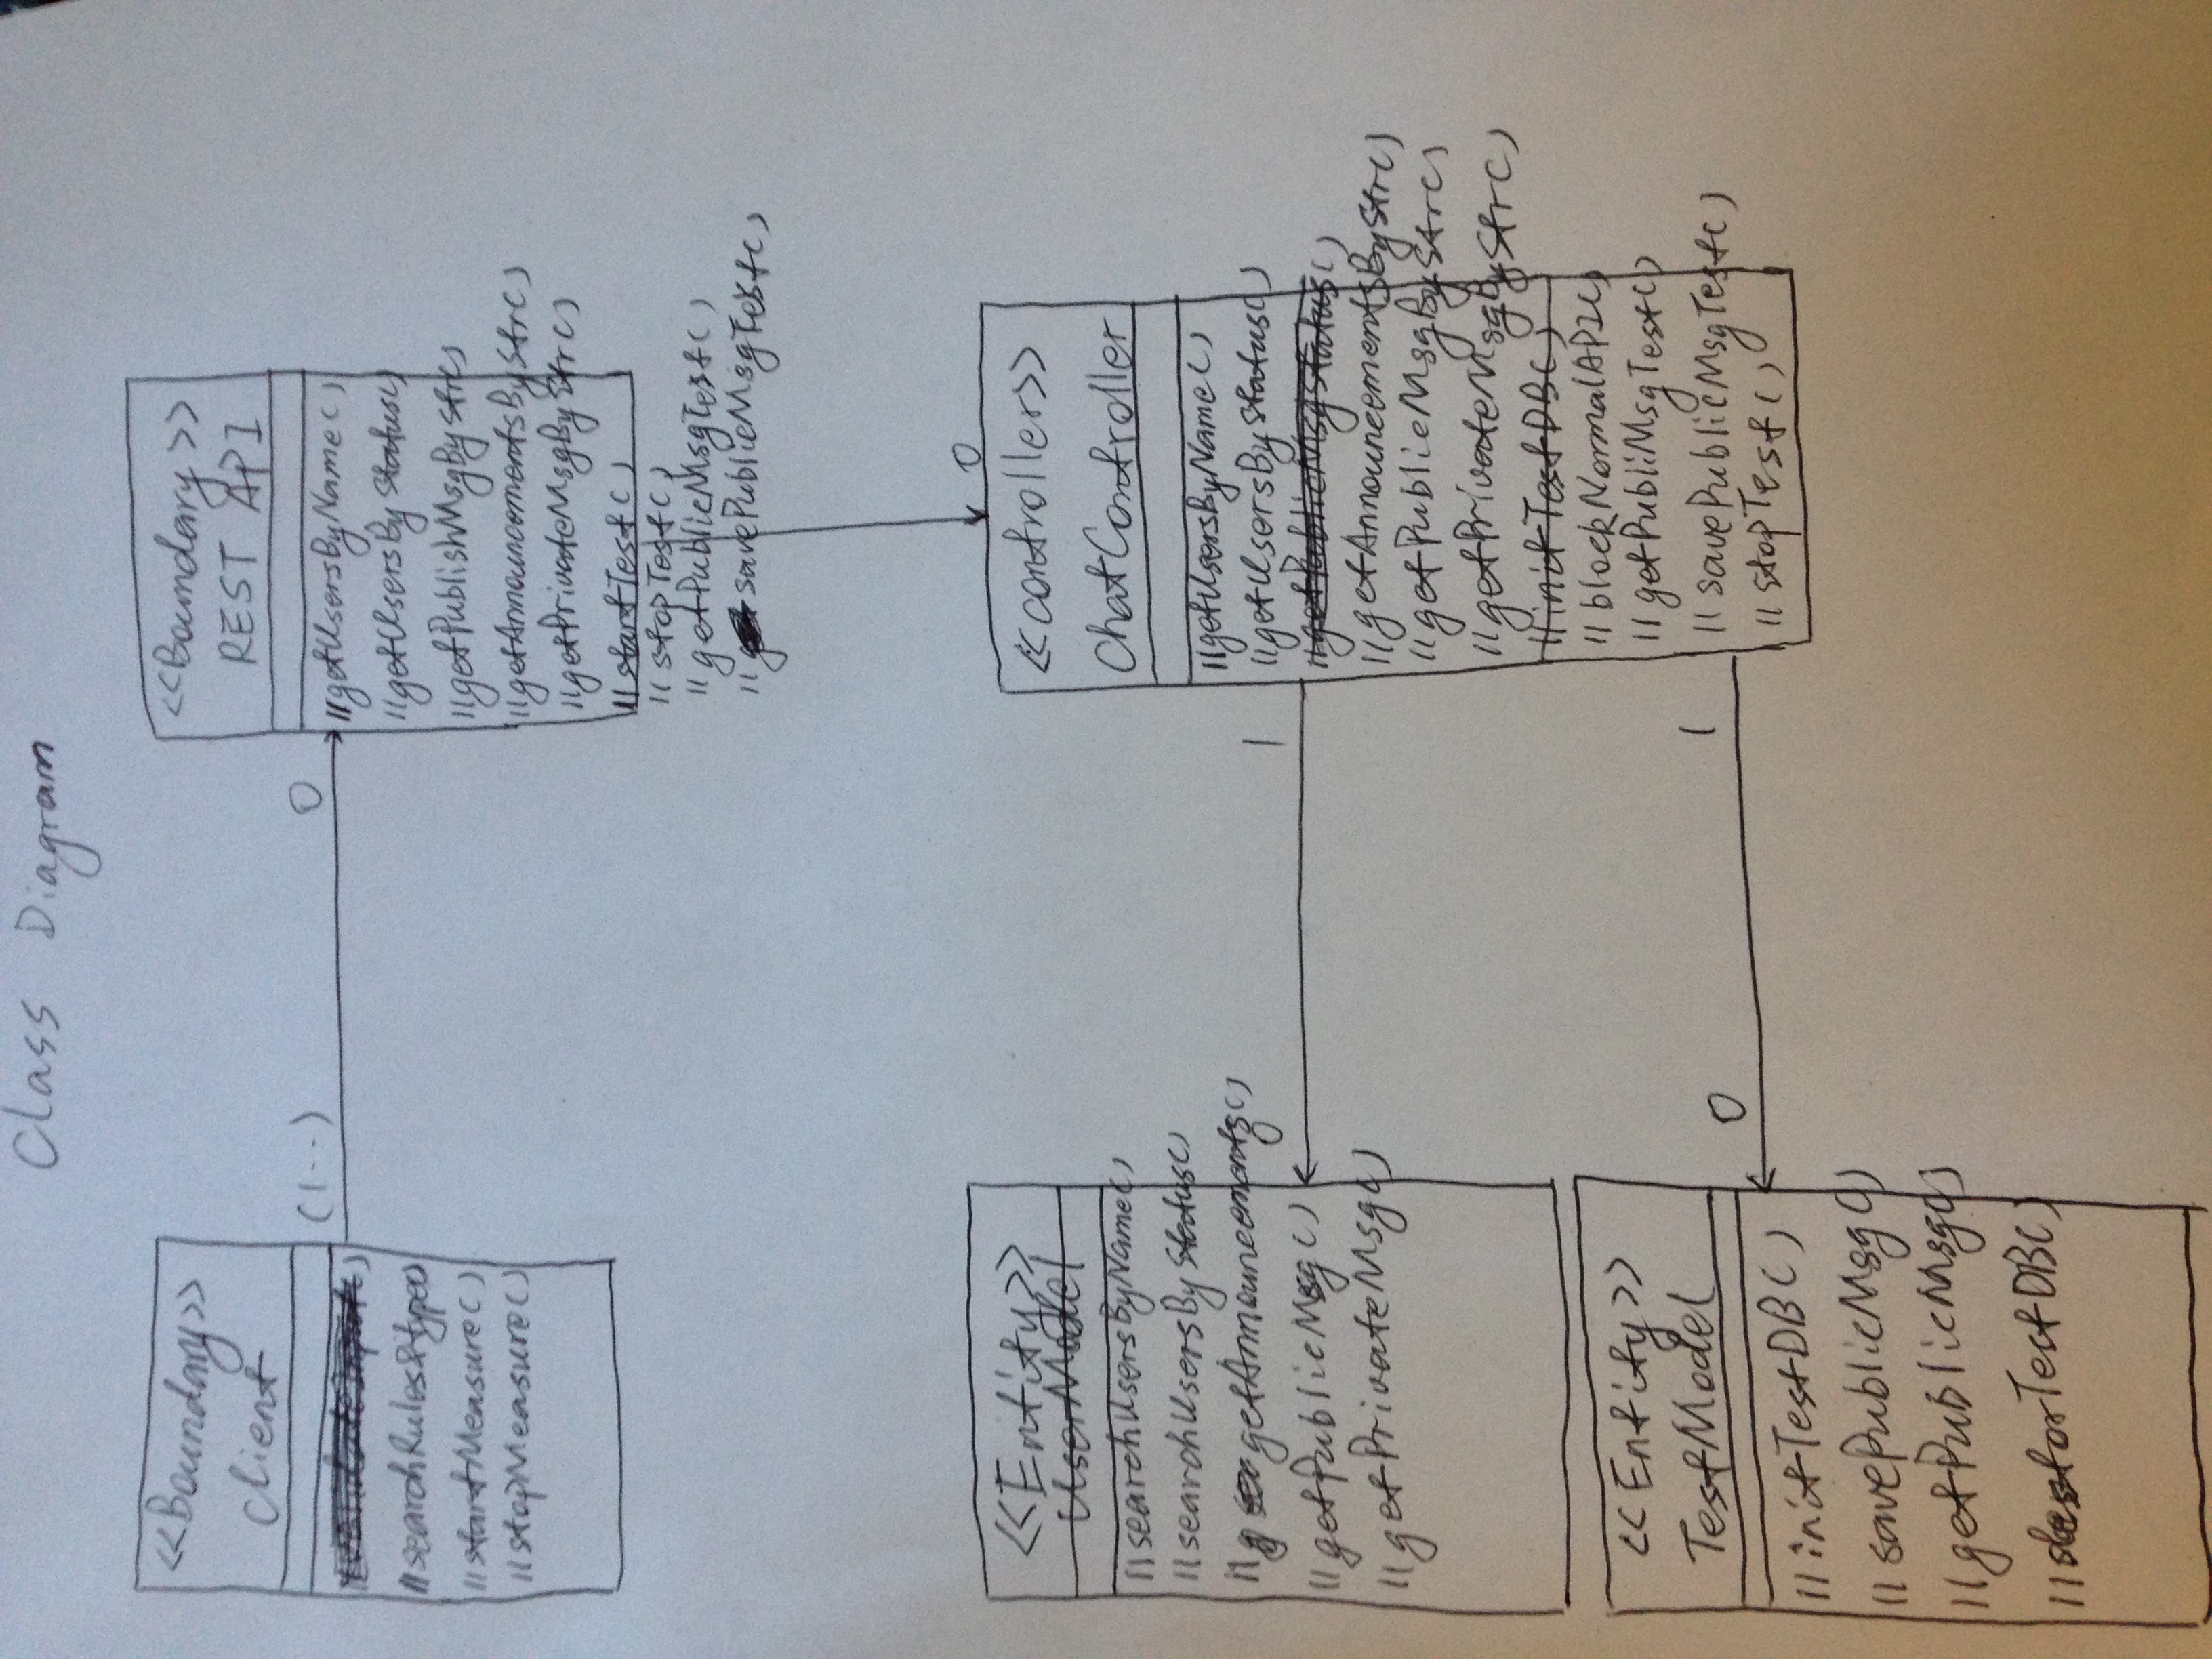 Class Diagram
<<Boundary>>
Client
//searchRules&type()
//startMeasure()
//stopMeasure()
(1..)
0
<<Boundary>>
REST API
//getUsersByName()
//getUsersByStatus()
//getPublishMsgByStr()
//getAnnouncementsByStr()
//getPrivateMsgByStr()
//startTest()
//stopTest()
//getPublicMsgTest()
// savePublicMsgTest()
0
<<Entity>>
UserModel
//searchUsersByName()
//searchUsersByStatus()
// getAnnouncements()
//getPublicMsg()
//getPrivateMsg()
0
1
<<controller>>
ChatController
//getUsersByName()
//getUsersByStatus()
//getPublicMsgStatus()
//getAnnouncementsByStr()
//getPublicMsgByStr()
//getPrivateMsgByStr()
//initTestDB()
//blockNormalAPI()
//getPubliMsgTest()
//savePublicMsgTest()
//stopTest()
<<Entity>>
TestModel
0
1
//initTestDB()
//savePublicMsg()
//getPublicMsg()